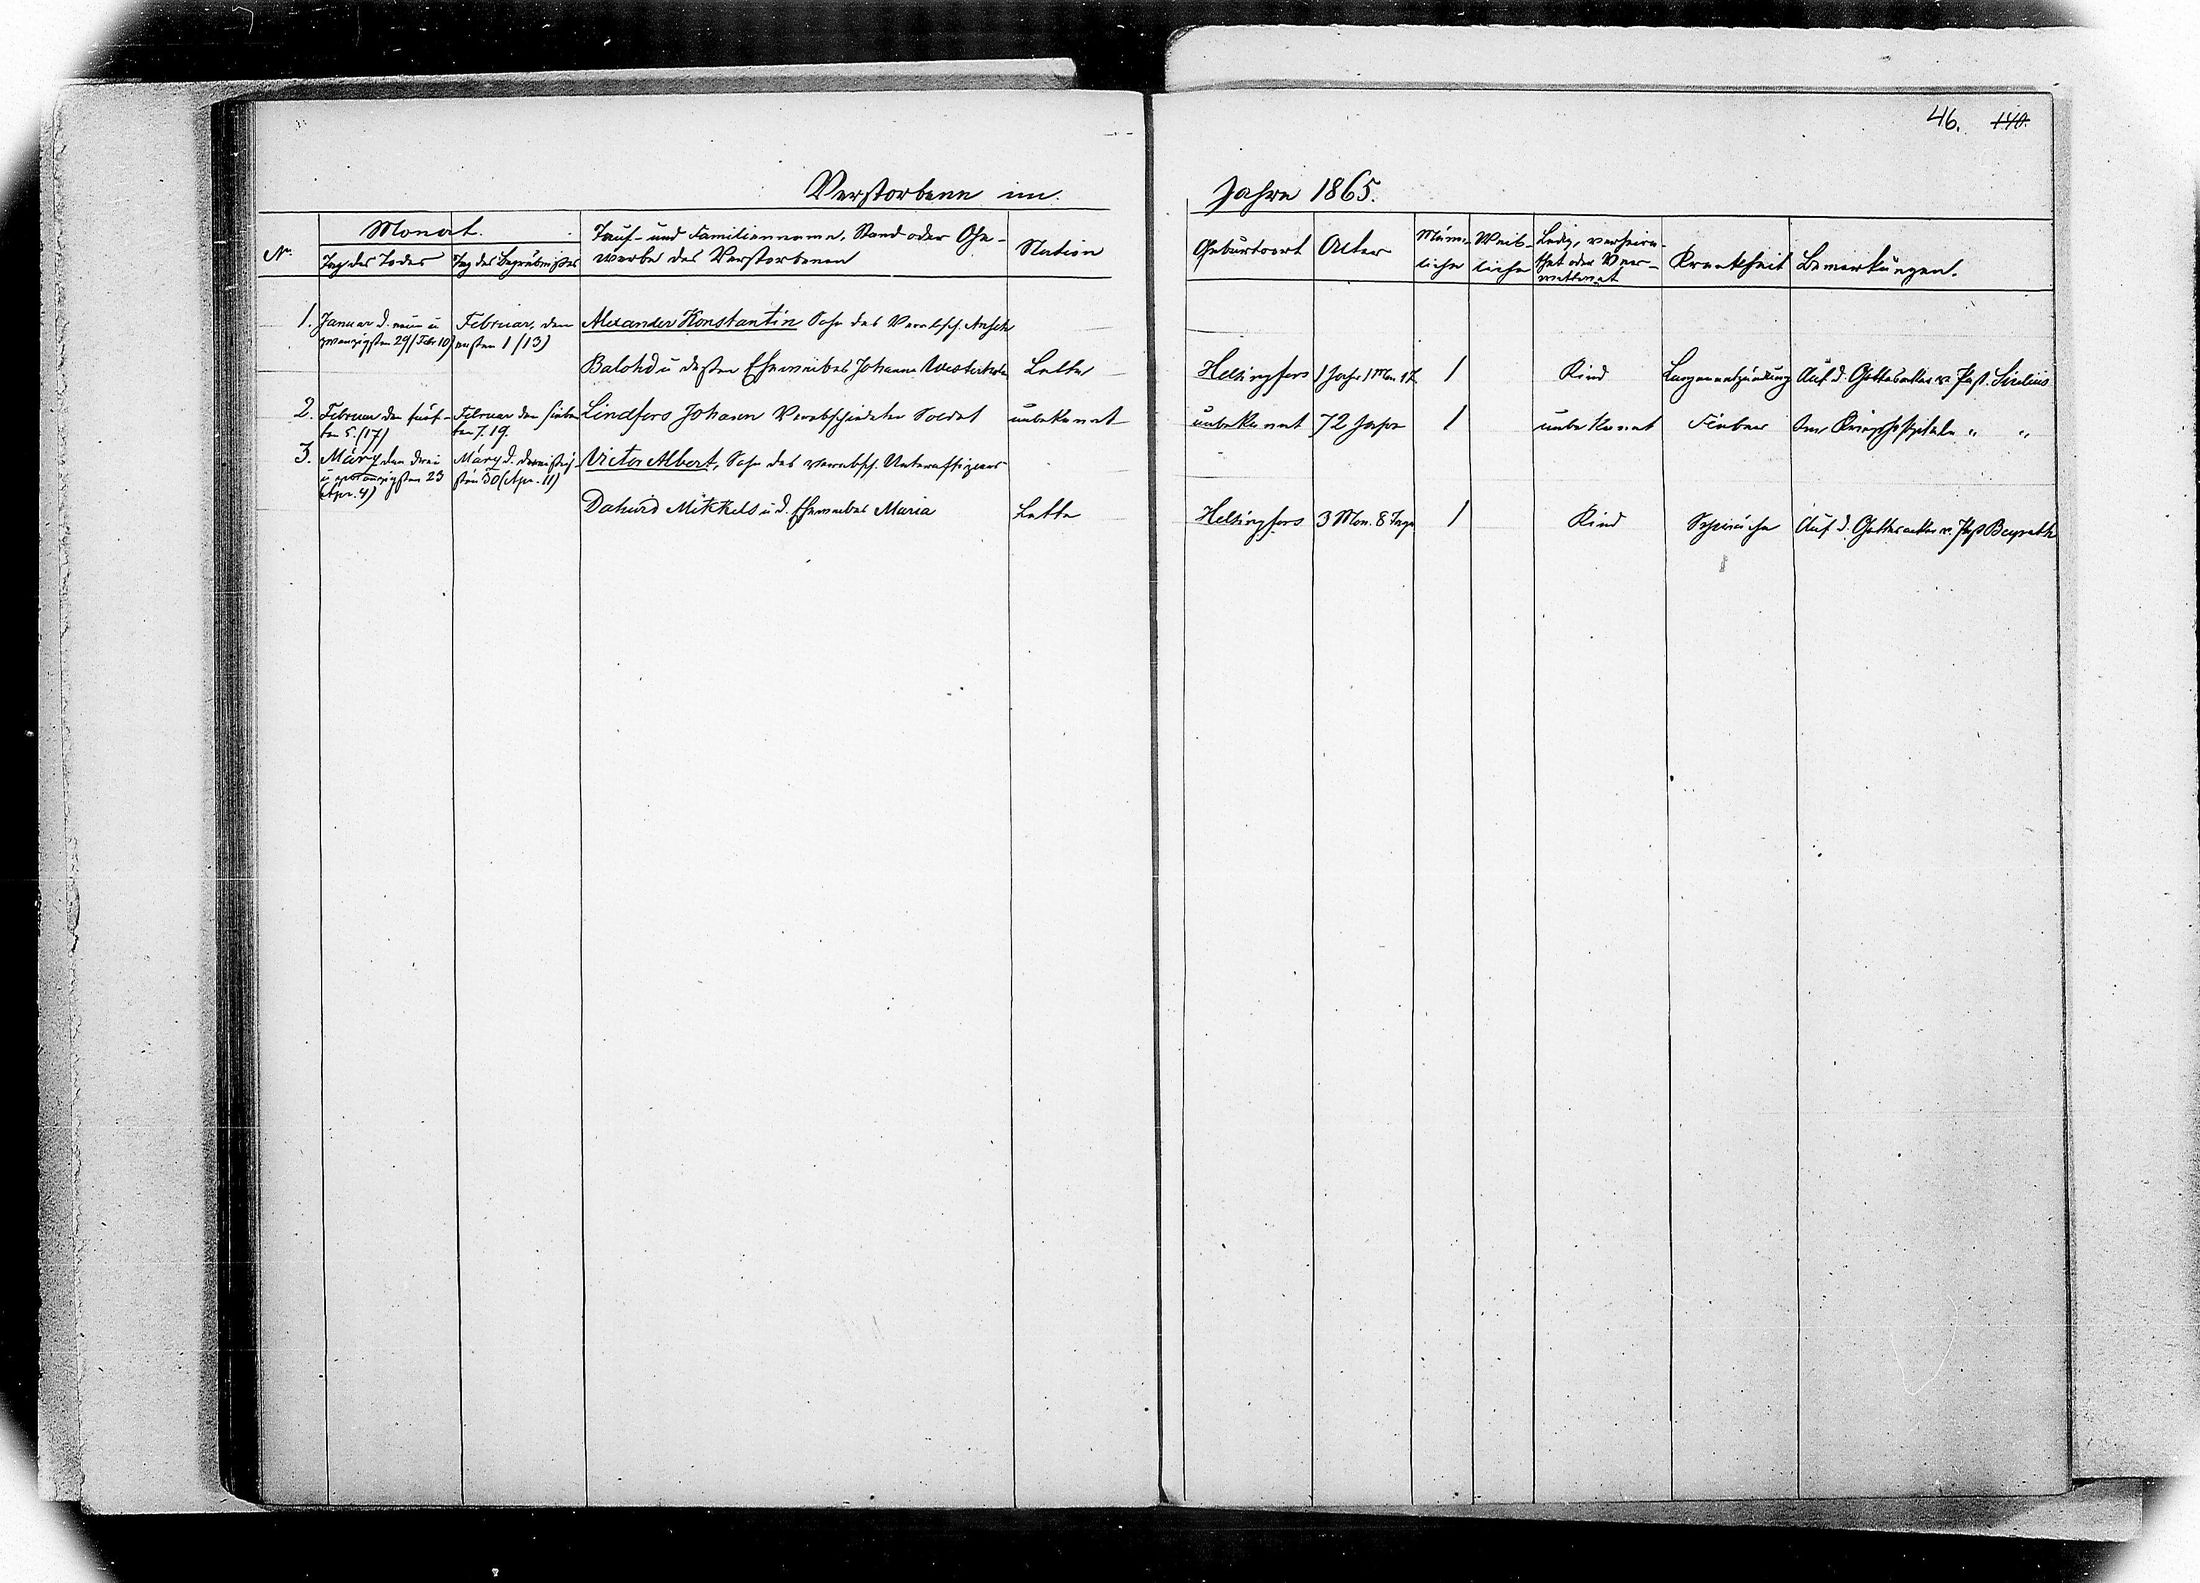 46. 140.
Verstorbene im Jahre 1865.
Nr.
Monat.
Tag des Todes
Tag des Begräbnißes
Tauf- und Familienname, Stand oder Ge-
werbe des Verstorbenen
Nation
Geburtsort
Alter
Männ-
liche
Weib-
liche
Ledig, verheira-
thet oder Ver-
wittwet
Krankheit
Bemerkungen.
1.
Januar d. neun u
zwanzigsten 29 (Febr 10)
Februar, den
ersten 1 (13)
Alexander Konstantin Sohn des Verabsch.
Balohd u dessen Eheweibes Johanna
Lette
Helsingfors
1 Jahr 1 Mon.
1
Kind
Lungenentzündung
Auf d. Gottesacker v. Past. Sirelius
2.
Februar den fünf-
ten 5. (17)
Februar den sieben
ten 7. 19.
Lindfors Johann Verabschiedeter Soldat
unbekannt
unbekannt
72 Jahre
1
unbekannt
Fieber
Im Kriegshospitale " "
3.
März den drei
u zwanzigsten 23
(Apr. 4)
März d. dreißig-
sten 30 (Apr. 11)
Victor Albert, Sohn des verabsch. Unteroffiziers
Dahwid Mikkels u d. Eheweibes Maria
Lette
Helsingfors
3 Mon. 8 Tage
1
Kind
Schwäche
Auf d. Gottesacker v. Past Beyrath